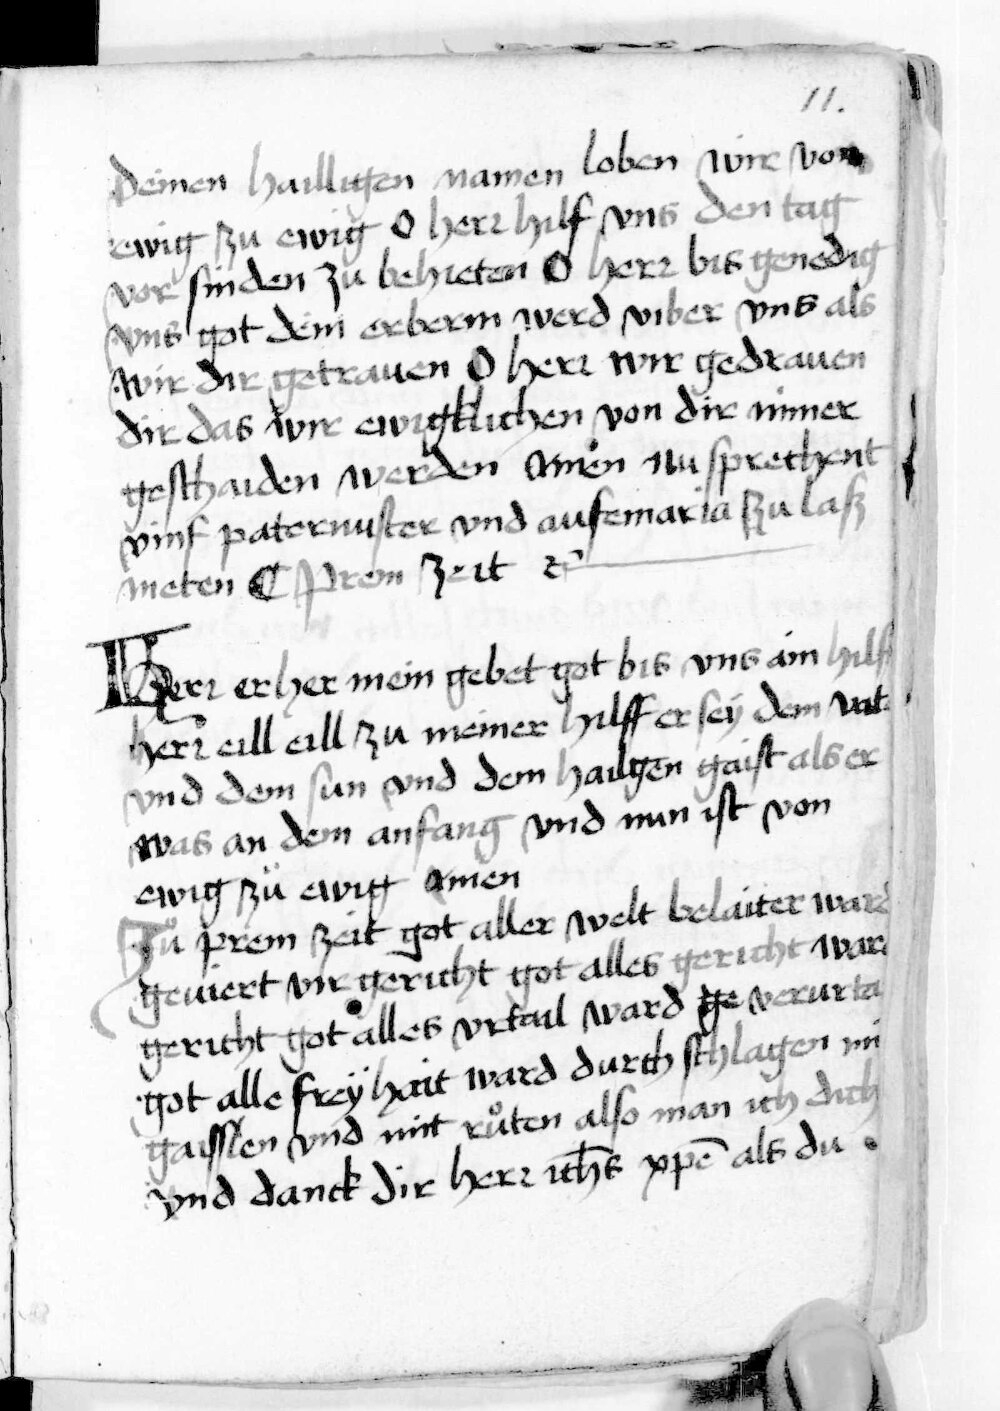 11.
deinen hailligen namen loben wir von
ewig zu ewig O herr hilf vns den tag
vor sinden zu behieten O herr bis genedig
vns got dein erberm werd viber vns als
wir dir getrauen O herr wir gedrauen
dir das wir ewigklichen von dir nimer
geschaiden werden Amen nu sprechent
vinf paternuster vnd aufemaria zu lasz
meten ¶ Prem zeit
Herr erher mein gebet got bis vns ain hilff
herr eill eill zu meiner hilff er seÿ dem vat
vnd dem sun vnd dem hailgen gaist als er
was an dem anfang vnd nun ist von
ewig zü ewig Amen
Zů prem zeit got aller welt belaiter ward
geuiert vir gericht got alles gericht ward
gericht got alles vrtail ward ge verurta
got alle freÿ hait ward durch schlagen mi
gaisslen vnd mit růten also man ich dich
vnd danck dir herr ich̄s xp̄e als du